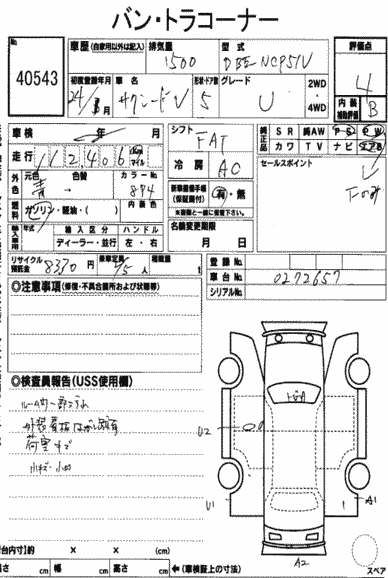 バン・トラコーナー
No.
40543
車歴 (自家用以外は記入)
排気量
1500
型式
DBE-NCP51V
評価点
4
初度登録年月
24年 月
車名
サクシードV
形状・ドア数
5
グレード
U
2WD
4WD
内装補助評価
B
車検 年 月
シフト
FAT
純正品
SR 純AW PS PW
カワ TV ナビ エアB
走行
112,406 km マイル
冷房
AC
セールスポイント
外色
元色
青
色替
→
カラーNo.
894
新車整備手帳(保証書付)
有・無
※画面と一緒に保管下さい。
燃料
ガソリン・軽油・( )
内装色
名義変更期限
月 日
年式
輸入区分
ハンドル
ディーラー・並行
左・右
リサイクル預託金
8370円
乗車定員
2/5人
積載量
登録No.
車台No.
0272657
シリアルNo.
◎注意事項(修復・不具合箇所および状態等)
◎検査員報告(USS使用欄)
荷室キズ
小キズ・小凹
トヨタ
U2
U1
A1
1
A2
(荷台内寸)約 × × (cm)
長さ cm 幅 cm 高さ cm
←(車検証上の寸法)
スペア